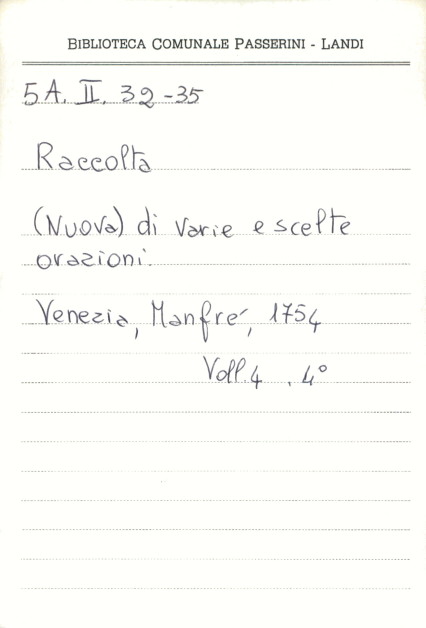 BIBLIOTECA COMUNALE PASSERINI - LANDI
5A. II. 32-35
Raccolta
(Nuova) di varie e scelte
orazioni.
Venezia, Manfré, 1754
Voll. 4 , 4°